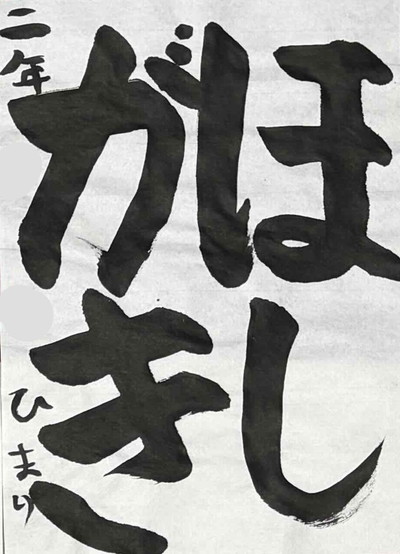 ほし
がき
二年 ひまり